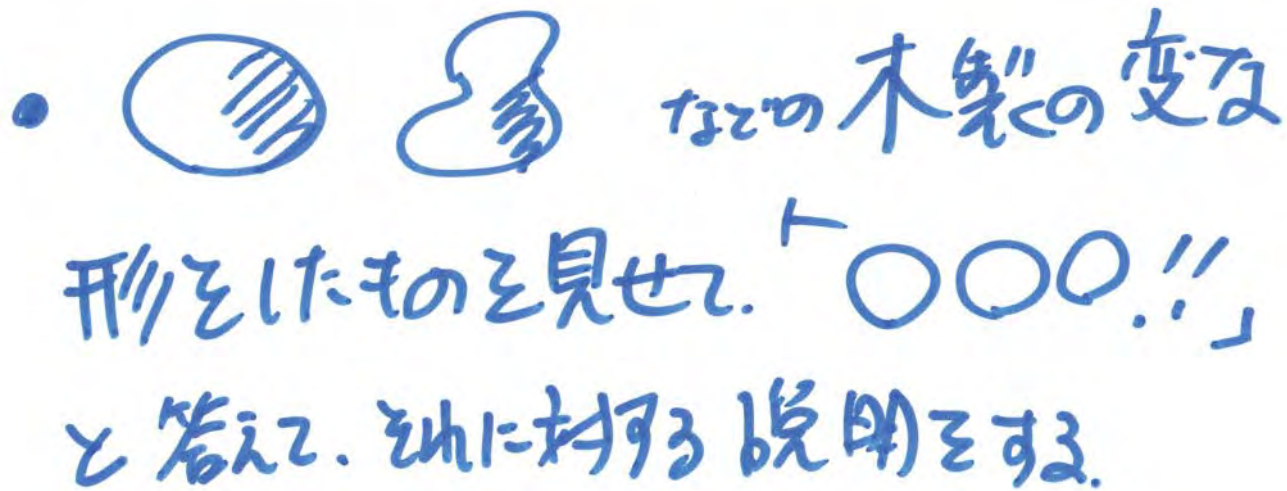 ・ などの木製の変な
形をしたものを見せて.「○○○!!」
と答えて、それに対する説明をする.